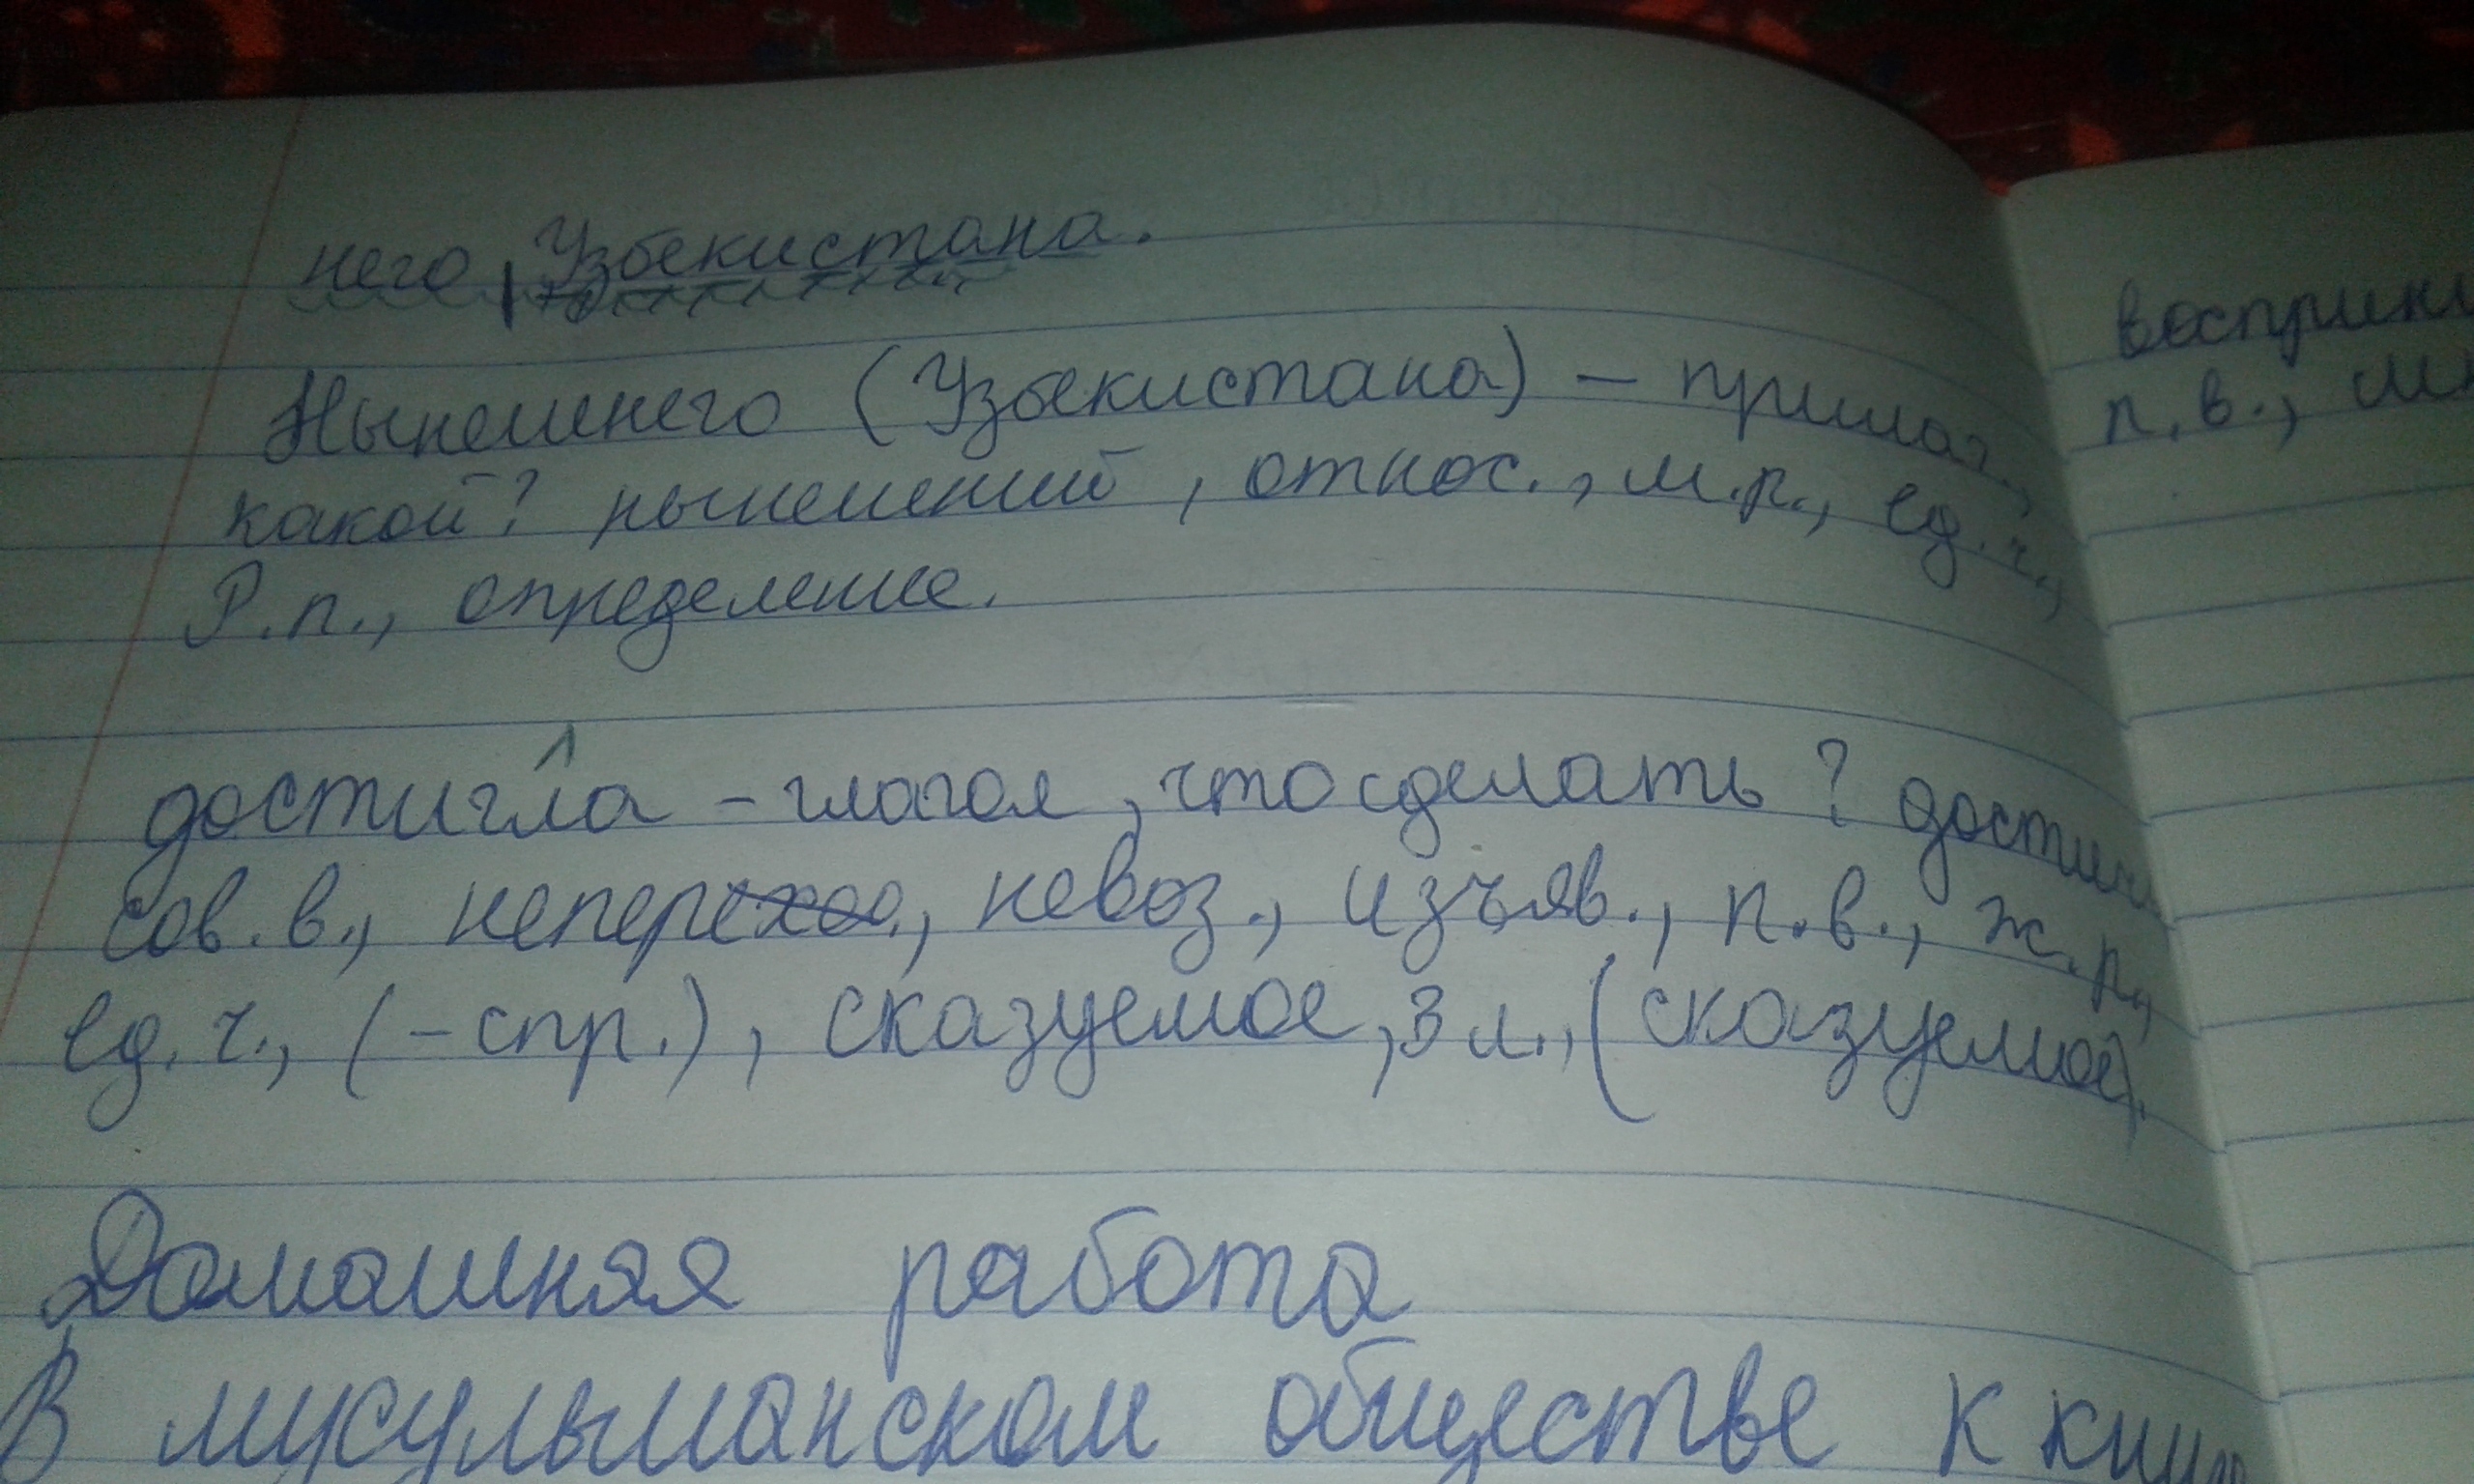 него, Узбекистана.
Нынешнего (Узбекистана) – прилаг.,
какой? нынешний, относ., м.р., ед.ч.,
Р.п., определение.
достигла – глагол, что сделать? достичь
сов. в., неперехо., невоз., изъяв., п.в., ж.р.,
ед.ч., (-спр.), сказуемое, 3 л., (сказуемое).
Домашняя работа
В мусульманском обществе к
п.в.,